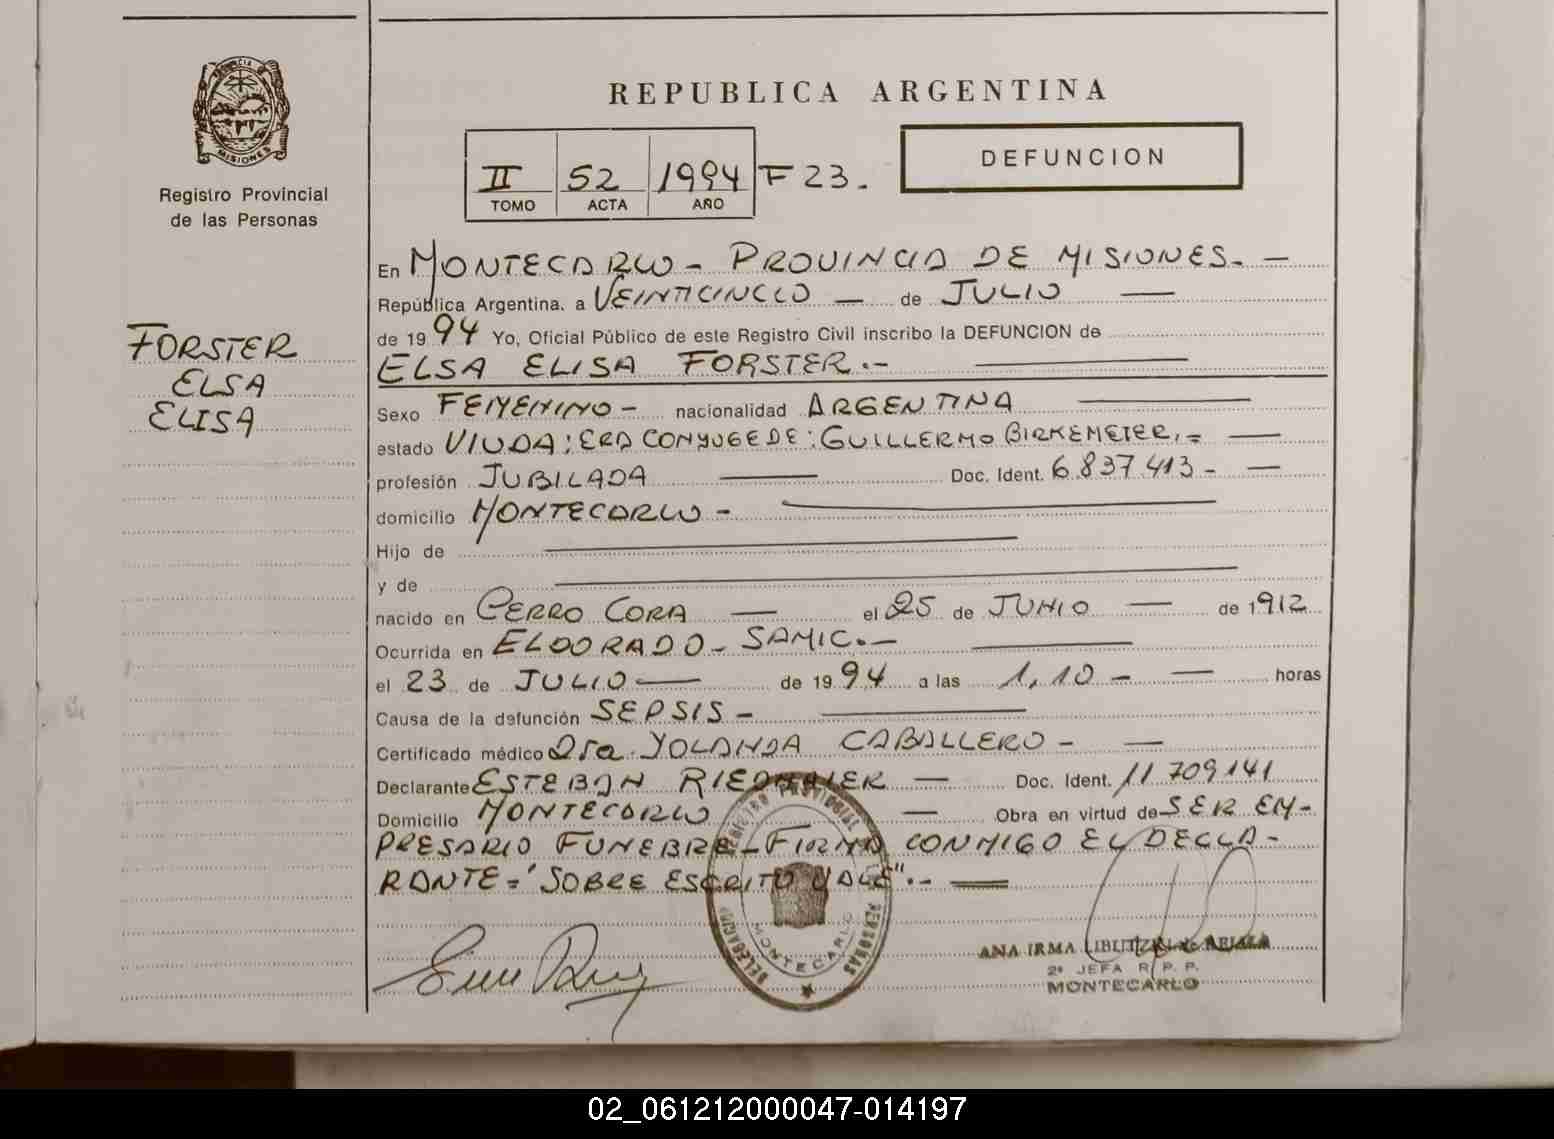 REPUBLICA ARGENTINA
PROVINCIA DE
MISIONES
Registro Provincial
de las Personas
II 52 1994 F 23.
TOMO ACTA AÑO
DEFUNCION
FORSTER
ELSA
ELISA
En MONTECARLO - PROVINCIA DE MISIONES. -
República Argentina, a VEINTICINCO - de JULIO -
de 1994 Yo, Oficial Público de este Registro Civil inscribo la DEFUNCION de
ELSA ELISA FORSTER.-
Sexo FEMENINO - nacionalidad ARGENTINA
estado VIUDA; ERA CONYUGE DE: GUILLERMO BIRKEMEIER.=
profesión JUBILADA Doc. Ident. 6.837.413 -
domicilio MONTECARLO -
Hijo de
y de
nacido en CERRO CORA - el 25 de JUNIO - de 1912
Ocurrida en ELDORADO - SAMIC.-
el 23 de JULIO - de 1994 a las 1,10 - horas
Causa de la defunción SEPSIS -
Certificado médico Dra. YOLANDA CABALLERO -
Declarante ESTEBAN RIEDMAIER - Doc. Ident. 11 709141
Domicilio MONTECARLO - Obra en virtud de SER EM-
PRESARIO FUNEBRE - FIRMA CONMIGO EL DECLA-
RANTE = "SOBRE ESCRITO VALE".-
REGISTRO PROVINCIAL PERSONAS
DELEGACION MONTECARLO
ANA IRMA
2º JEFA R. P. P.
MONTECARLO
02_061212000047-014197